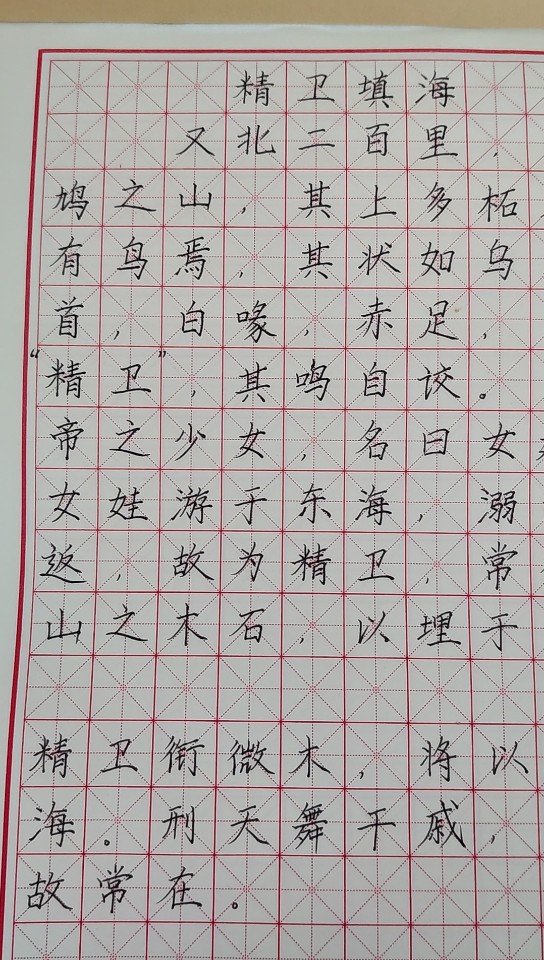 精卫填海
又北二百里，
鸠之山，其上多柘
有鸟焉，其状如乌
首，白喙，赤足，
“精卫”，其鸣自詨。
帝之少女，名曰女
女娃游于东海，溺
返，故为精卫，常
山之木石，以埋于
精卫衔微木，将以
海。刑天舞干戚，
故常在。